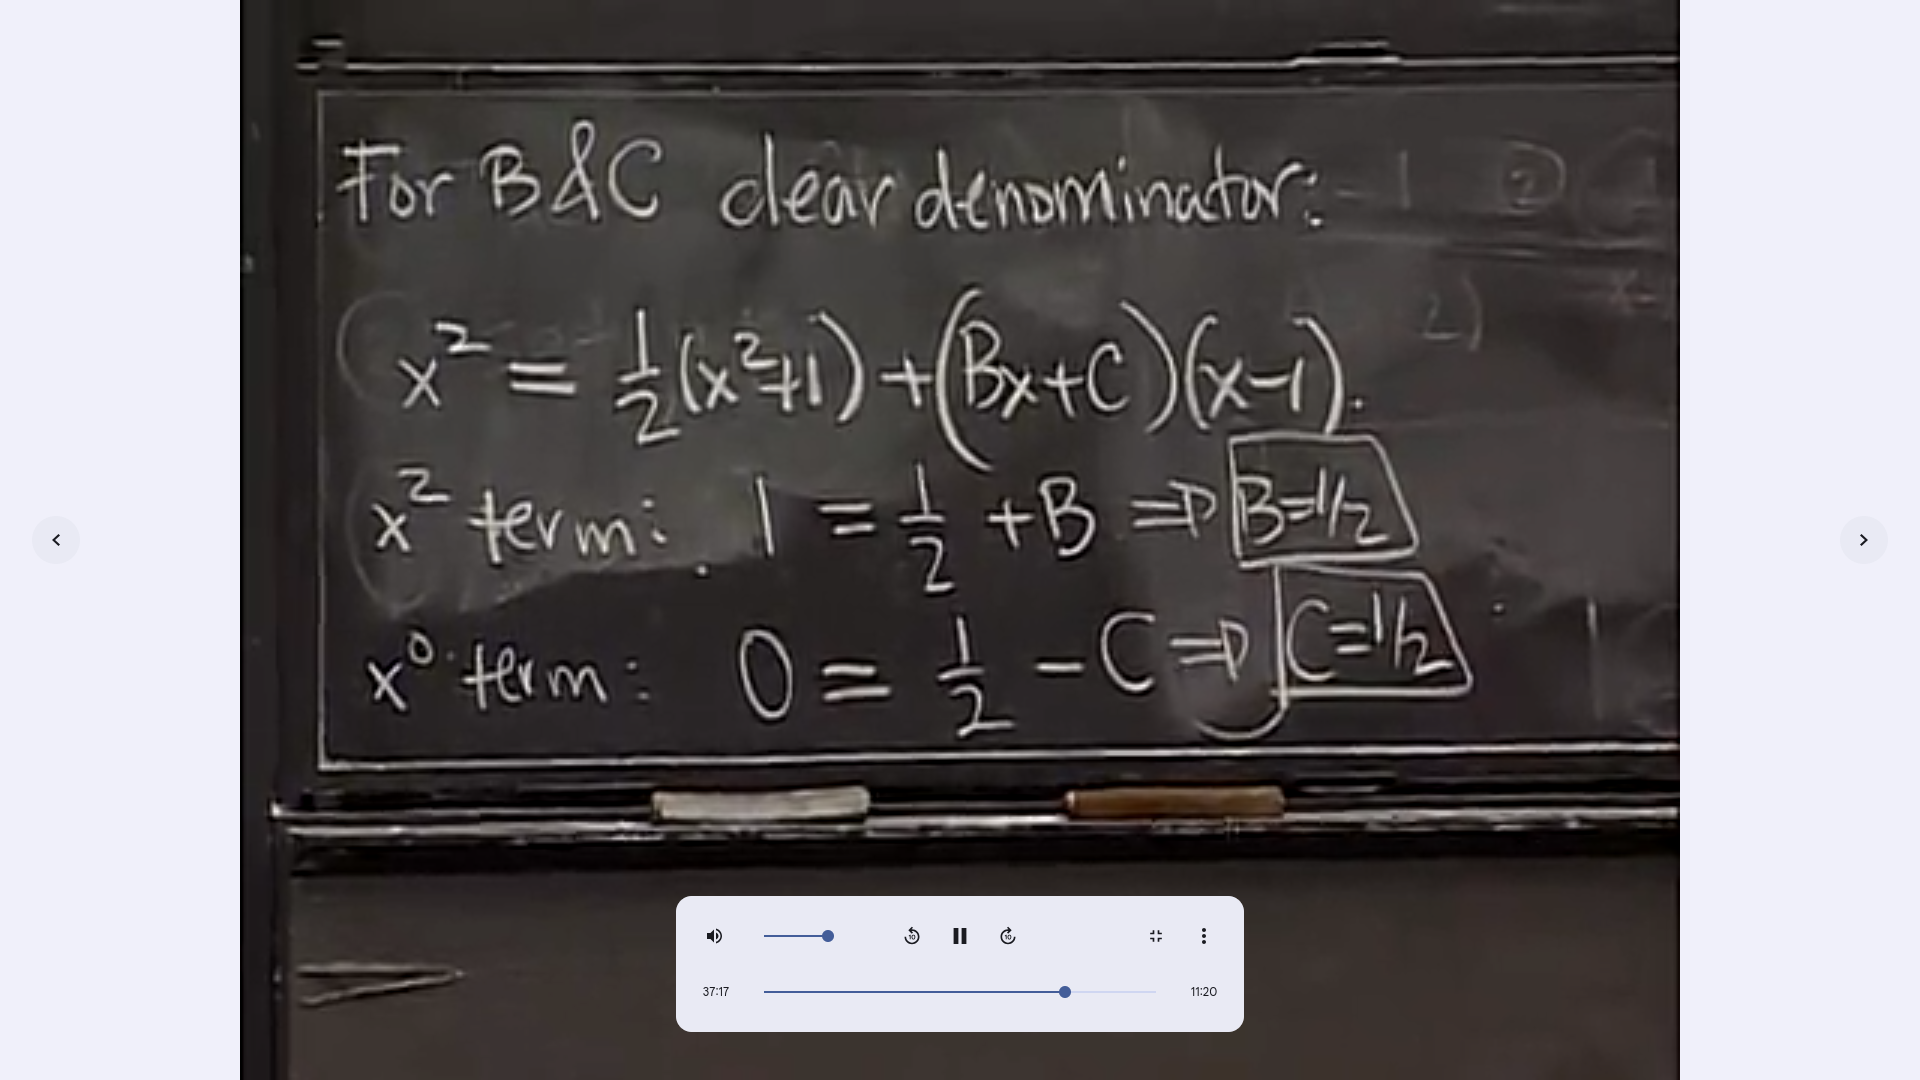 For B & C clear denominator:
x² = 1/2 (x²+1) + (Bx+C)(x-1).
x² term: 1 = 1/2 + B => B=1/2
x⁰ term: 0 = 1/2 - C => C=1/2
37:17
11:20